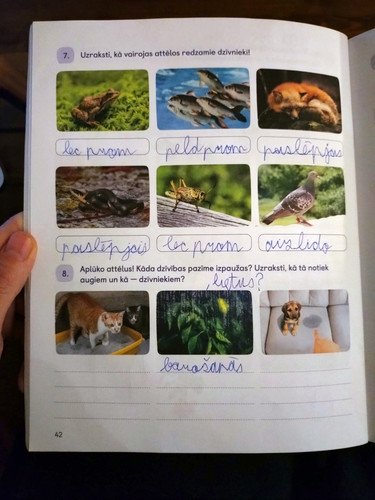 7. Uzraksti, kā vairojas attēlos redzamie dzīvnieki!
lec prom peld prom paslēpjas
paslēpjais lec prom aizlido
8. Aplūko attēlus! Kāda dzīvības pazīme izpaužas? Uzraksti, kā tā notiek
augiem un kā — dzīvniekiem? lietus?
barošanās
42